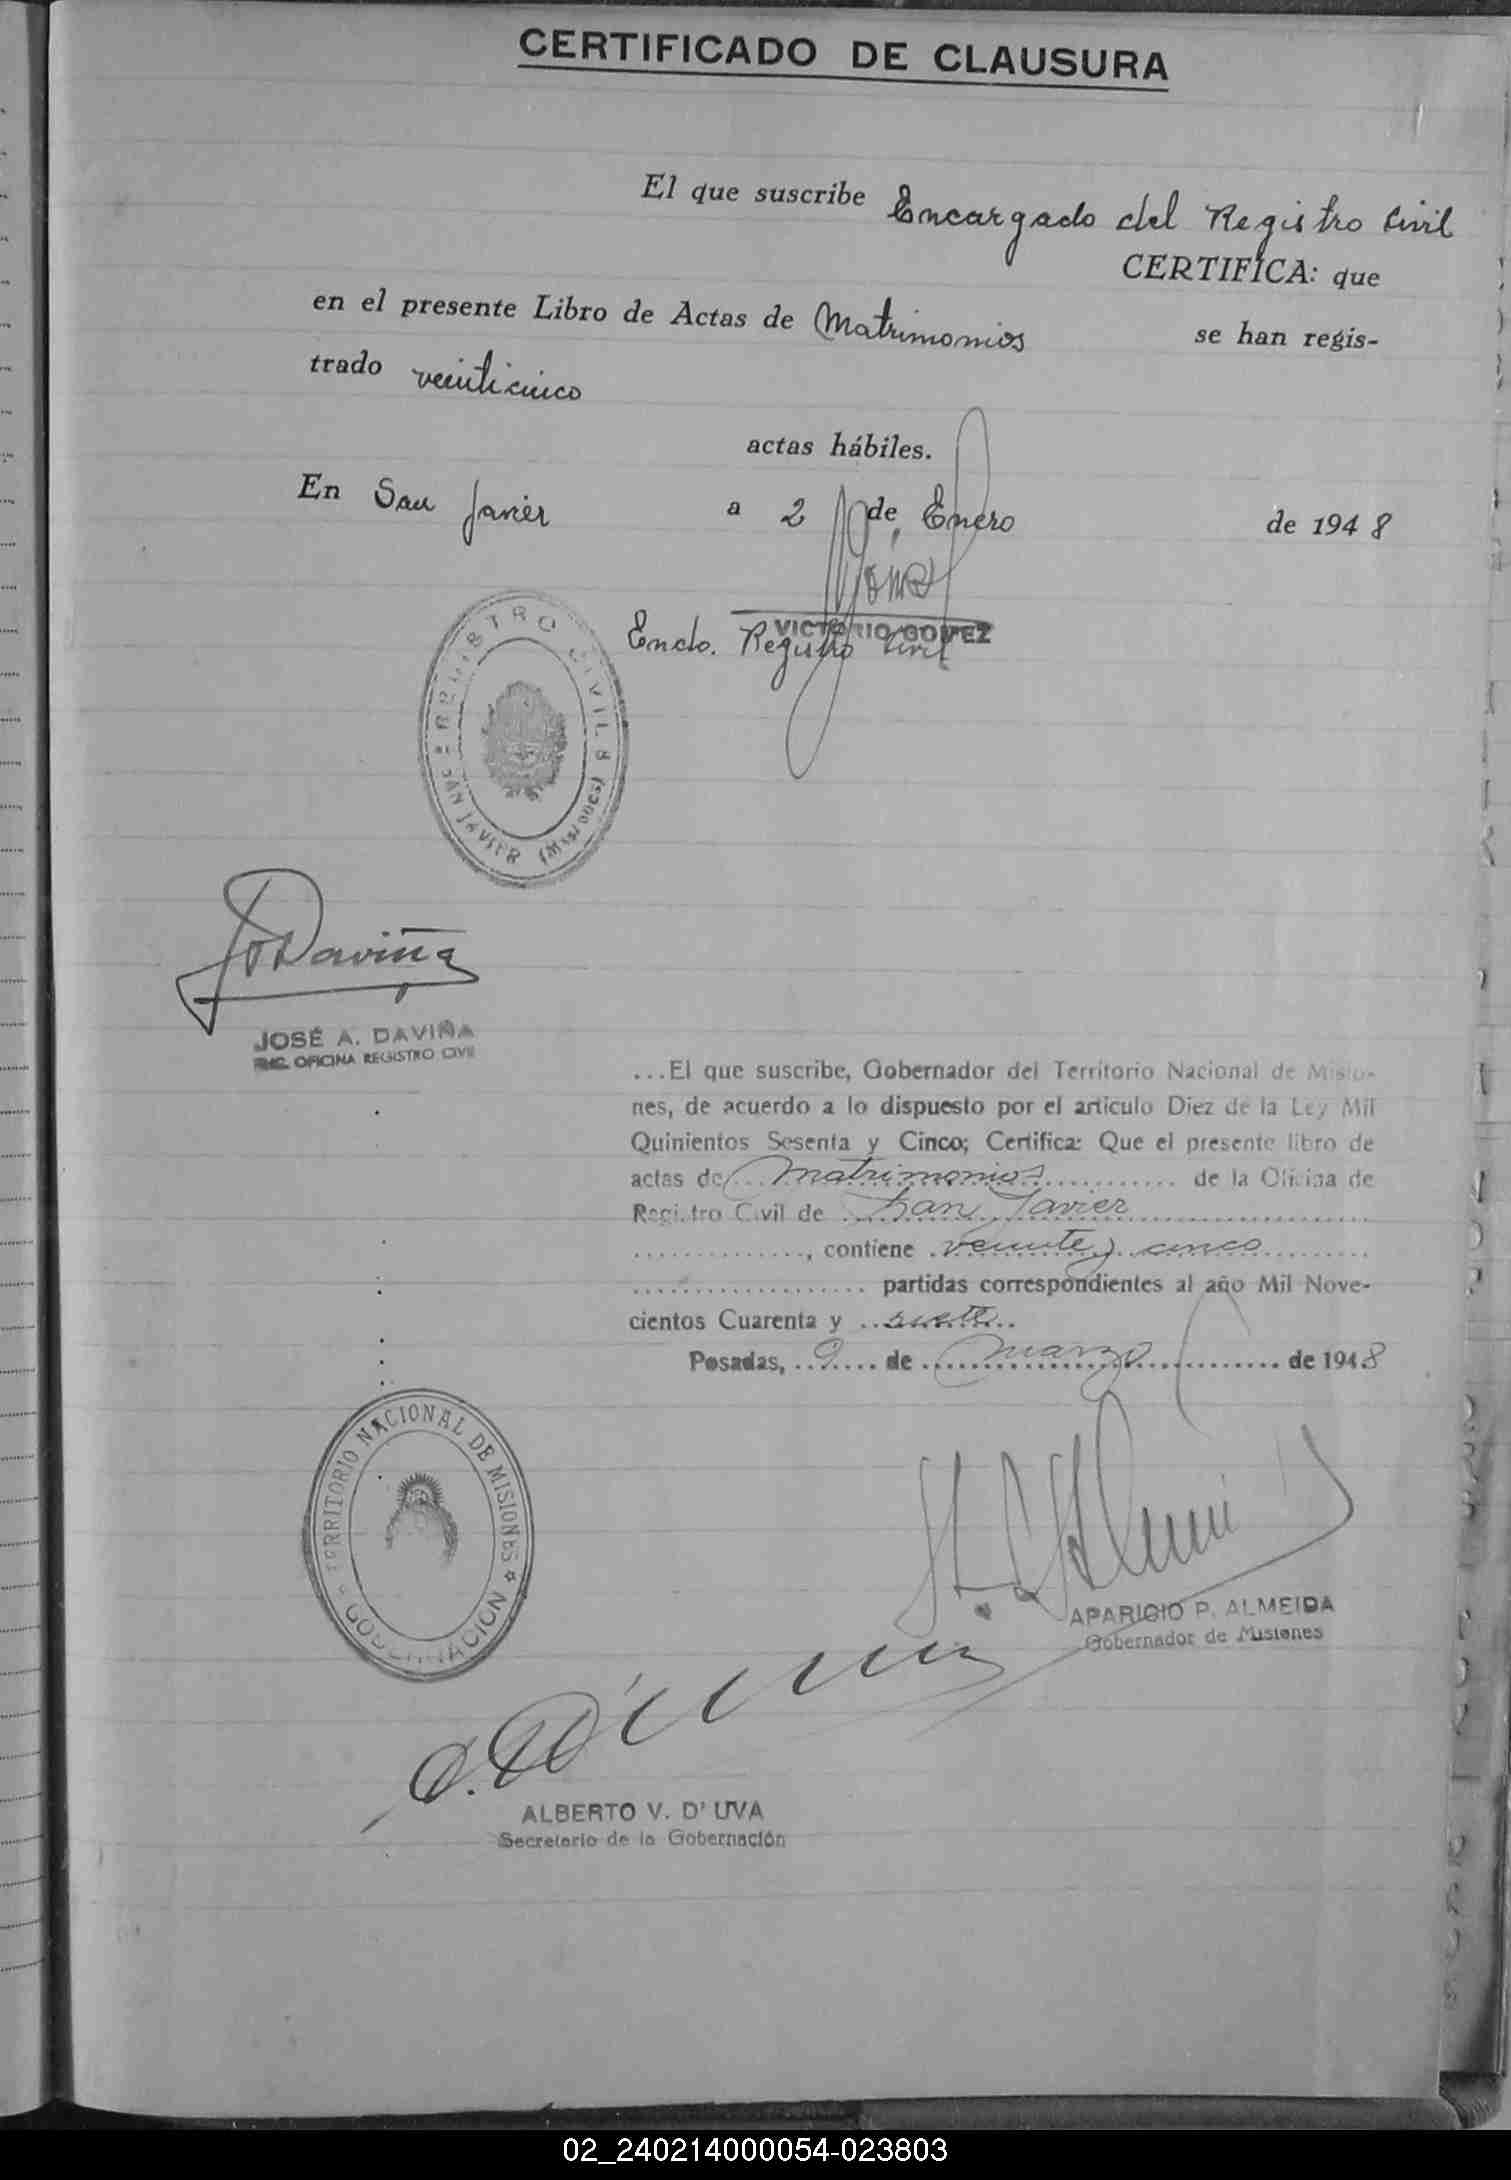 CERTIFICADO DE CLAUSURA
El que suscribe Encargado del Registro Civil
CERTIFICA: que
en el presente Libro de Actas de Matrimonios se han regis-
trado veinticinco
actas hábiles.
En San Javier a 2 de Enero de 1948
Gómez
VICTORIO GOMEZ
Encdo. Registro Civil
REGISTRO CIVIL
SAN JAVIER (Misiones)
Daviña
JOSÉ A. DAVIÑA
ENC. OFICINA REGISTRO CIVIL
...El que suscribe, Gobernador del Territorio Nacional de Misio-
nes, de acuerdo a lo dispuesto por el artículo Diez de la Ley Mil
Quinientos Sesenta y Cinco; Certifica: Que el presente libro de
actas de Matrimonios de la Oficina de
Registro Civil de San Javier
, contiene veinte y cinco
partidas correspondientes al año Mil Nove-
cientos Cuarenta y siete
Posadas, 9 de Marzo de 1948
TERRITORIO NACIONAL DE MISIONES
GOBERNACION
APARICIO P. ALMEIDA
Gobernador de Misiones
ALBERTO V. D'UVA
Secretario de la Gobernación
02_240214000054-023803